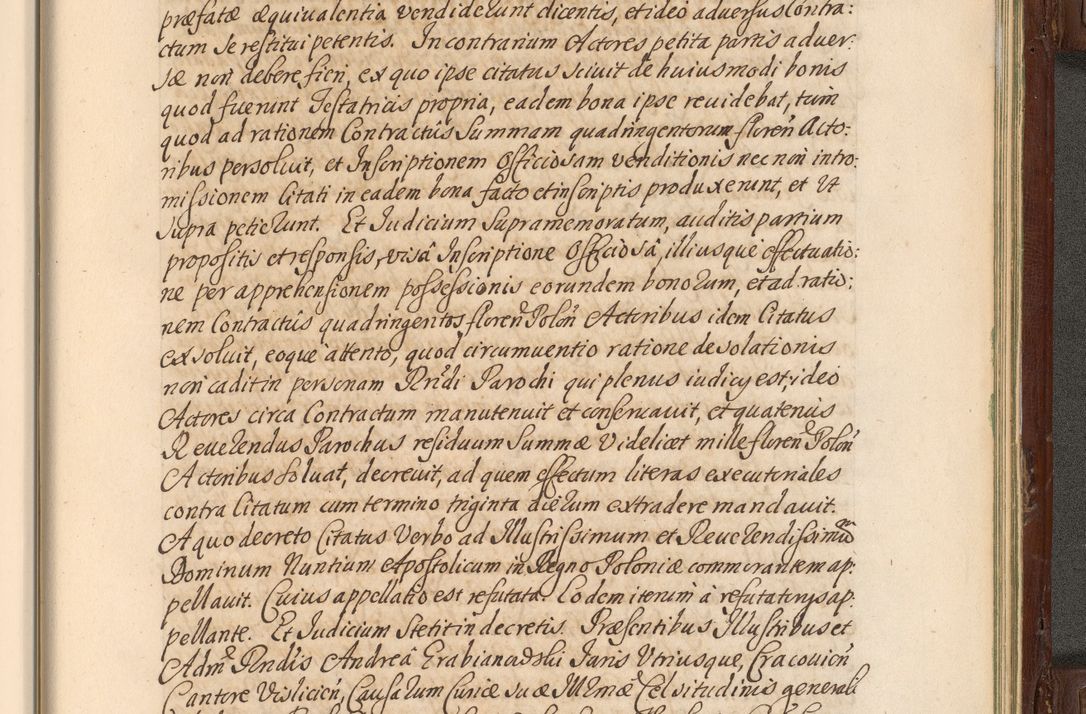 præfatæ æquiualentia vendiderunt dicentis, et ideo aduersus Contra:
ctum se restitui petentis. In contrarium Actores petita partis aduer:
sæ non debere fieri, ex quo ipse citatus sciuit de huiusmodi bonis
quod fuerunt Testatricis propria, eadem bona ipse reuidebat, tum
quod ad rationem Contractûs Summam quadringentorum floren̄ Acto:
ribus persoluit, et Inscriptionem Officiosam venditionis nec non intro:
missionem Citati in eadem bona facto et inscriptis produxerunt, et Ut
supra petierunt. Et Iudicium Supramemoratum, auditis partium
propositis et responsis, visâ Inscriptione Officiosâ, illiusque effectuatio:
ne per apprehensionem possessionis eorundem bonorum, et ad ratio:
nem Contractûs quadringentos floren̄ Polon̄ Actoribus idem Citatus
exsoluit, eoque attento, quod circumuentio ratione desolationis
non cadit in personam Rn̄di Parochi qui plenus iudicij est, ideo
Actores circa Contractum manutenuit et conseruauit, et quatenus
Reuerendus Parochus residuum Summæ Videlicet mille floren̄ Polon̄
Actoribus soluat, decreuit, ad quem effectum literas executoriales
contra Citatum cum termino triginta dierum extradere mandauit.
A quo decreto Citatus Verbo ad Illustrissimum et Reuerendissimum
Dominum Nuntium Apostolicum in Regno Poloniæ commorantem ap:
pellauit. Cuius appellatio est refutata. Eodem iterum à refutatorijs ap:
pellante. Et Iudicium stetit in decretis. Præsentibus Illustribus et
Adm̄ Rndis Andreâ Grabianowski Juris Utriusque, Cracouien̄
Cantore Vislicien̄, Causarum Curiæ suæ Illmæ Celsitudinis generali